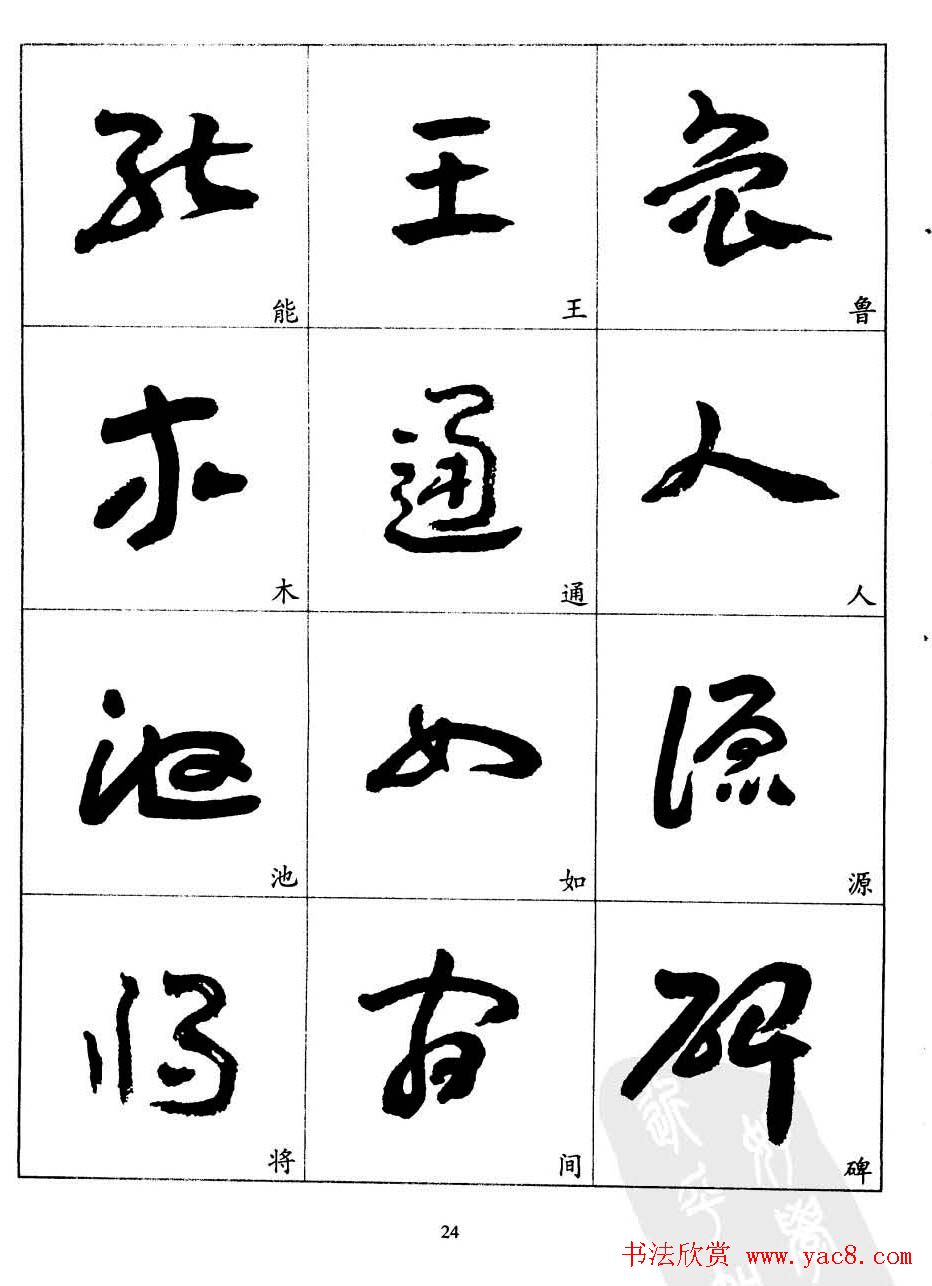 能 王 鲁
木 通 人
池 如 源
将 间 碑
24
书法欣赏 www.yac8.com